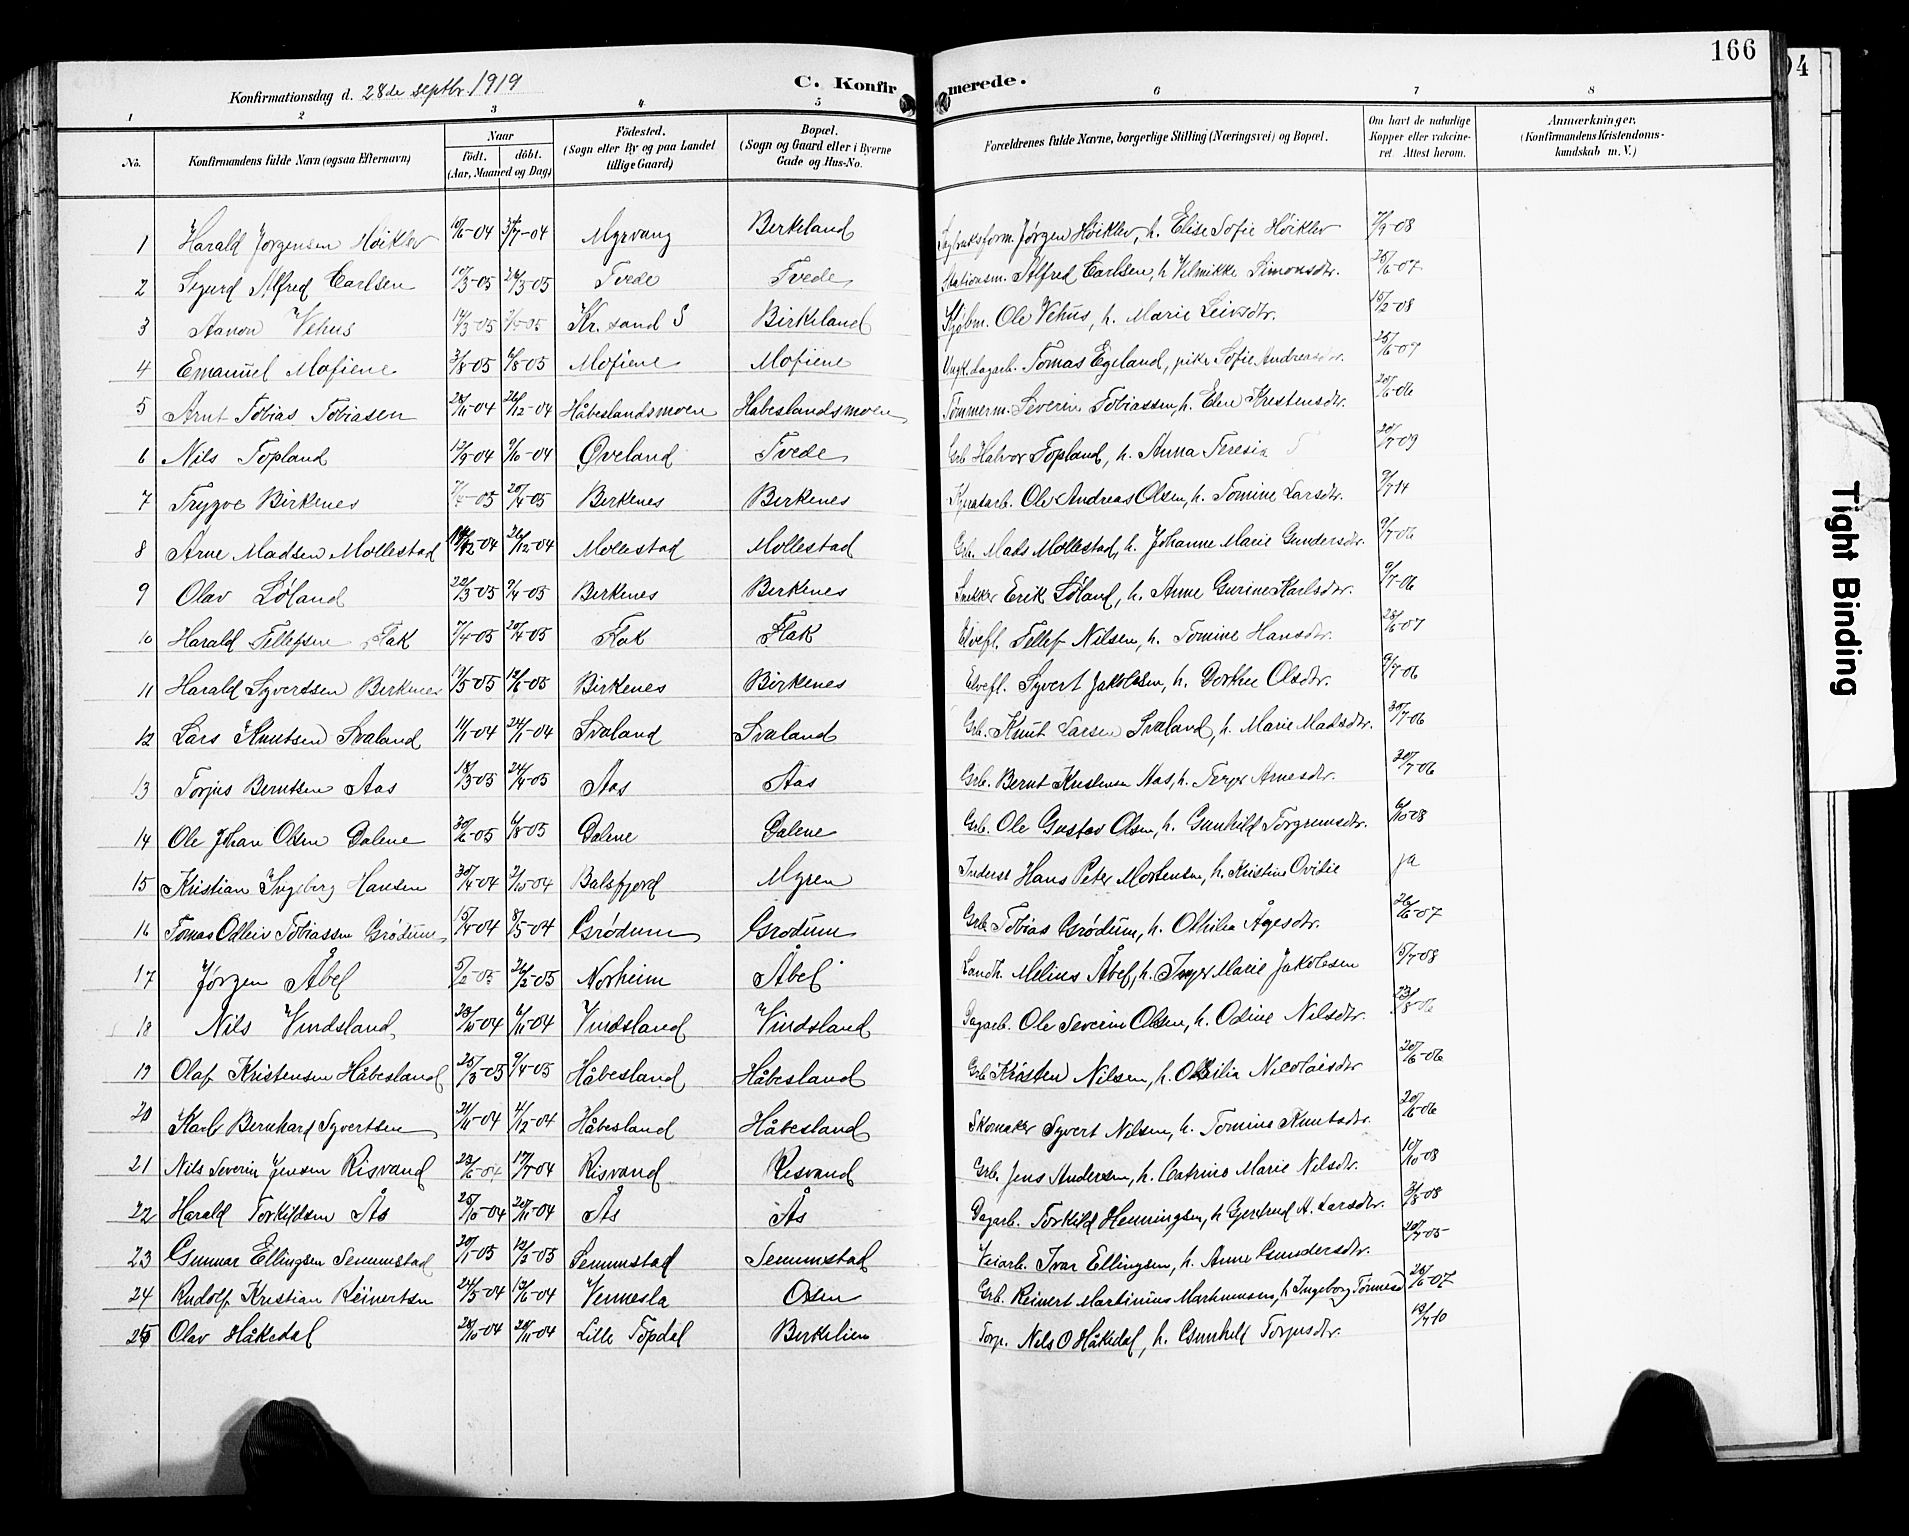 166
Konfirmationsdag d. 28de septbr 1919
C. Konfirmerede.
1 2 3 4 5 6 7 8
No. Konfirmandens fulde Navn (ogsaa Efternavn) Naar født. døbt. (Aar, Maaned og Dag) Fødested. (Sogn eller By og paa Landet tillige Gaard) Bopæl. (Sogn og Gaard eller i Byerne Gade og Hus-No. Forældrenes fulde Navne, borgerlige Stilling (Næringsvei) og Bopæl. Om havt de naturlige Kopper eller vakcineret. Attest herom. Anmærkninger. (Konfirmandens Kristendomskundskab m. V.)
1 Harald Jørgensen Høiklev 10/6-04 3/7-04 Myrvang Birkeland Jørgen Høiklev, h. Elise Sofie Høiklev 7/9-08
2 Sigurd Alfred Carlsen 10/3-05 26/3-05 Tvede Tvede Stationsm. Alfred Carlsen, h. Vilmikke Simonsdtr. 25/6-07
3 Aanon Vehus 14/3-05 Kr.sand S Birkeland Ole Vehus, h. Marie Leivsdtr. 15/2-08
4 Emanuel Mofiene 3/8-05 6/8-05 Mofiene Mofiene Ungk. dagarb. Tomas Egeland, pike Sofie Andreasdtr. 25/6-07
5 Arnt Tobias Tobiasen 28/11-04 26/12-04 Håbeslandsmoen Håbeslandsmoen Tømmerm. Severin Tobiassen, h. Elen Kristensdtr. 20/6-06
6 Nils Topland 13/9-04 9/10-04 Øveland Tvede Grb. Halvor Topland, h. Anna Teresia T 20/7-09
7 Trygve Birkenes 7/4-05 20/4-05 Birkenes Birkenes Ole Andreas Olsen, h. Tomine Larsdtr. 9/7-14
8 Arne Madsen Mollestad 14/12-04 26/12-04 Mollestad Mollestad Grb. Mads Mollestad, h. Johanne Marie Gundersdtr. 9/7-06
9 Olav Løland 22/3-05 9/4-05 Birkenes Birkenes Snekker Erik Løland, h. Anne Gurine Karlsdtr. 9/7-06
10 Harald Tellefsen Flak 7/4-05 20/4-05 Flak Flak Elvefl. Tellef Nilsen, h. Tomine Hansdtr. 28/6-07
11 Harald Syvertsen Birkenes 19/5-05 12/6-05 Birkenes Birkenes Elvefl. Syvert Jakobsen, h. Dorthee Olsdtr. 9/7-06
12 Lars Knutsen Svaland 11/1-04 24/1-04 Svaland Svaland Grb. Knut Larsen Svaland, h. Marie Madsdtr. 30/7-06
13 Torjus Berntsen Aas 18/3-05 24/4-05 Aas Aas Grb. Bernt Kristensen Aas, h. Terjer Arnesdtr. 30/7-06
14 Ole Johan Olsen Dalene 30/6-05 6/8-05 Dalene Dalene Grb. Ole Gustav Olsen, h. Gunhild Torgrimsdtr. 6/10-08
15 Kristian Ingeberg Hansen 30/4-04 2/10-04 Balsfjord Myren Inderst Hans Peter Mortensen, h. Kristine Ovidie ja
16 Tomas Odleiv Tobiassen Grødum 15/4-04 8/5-04 Grødum Grødum Grb. Tobias Grødum, h. Othilia Ågesdtr. 26/6-07
17 Jørgen Åbel 5/2-05 26/2-05 Norheim Åbel Landh. Melius Åbel, h. Inger Marie Jakobsen 15/7-08
18 Nils Vindsland 23/10-04 6/11-04 Vindsland Vindsland Dagarb. Ole Severin Olsen, h. Odine Nilsdtr. 23/8-06
19 Olaf Kristensen Håbesland 25/3-05 9/4-05 Håbesland Håbesland Grb. Kristen Nilsen, h. Otilia Nicolaisdtr 20/6-06
20 Karl Bernhard Syvertsen 21/11-04 4/12-04 Håbesland Håbesland Skomaker Syvert Nilsen, h. Tomine Knutsdtr. 20/6-06
21 Nils Severin Jensen Risvand 23/6-04 17/7-04 Risvand Risvand Grb. Jens Andersen, h. Catrine Marie Nilsdtr. 10/10-08
22 Harald Torkildsen Ås 25/10-04 20/11-04 Ås Ås Dagarb. Torkild Henningsen, h. Gjertrud A. Larsdtr. 3/8-08
23 Gunnar Ellingsen Senumstad 20/1-05 12/3-05 Senumstad Senumstad Veiarb. Ivar Ellingsen, h. Anne Gundersdtr. 20/7-05
24 Rudolf Kristian Reinertsen 24/5-04 12/6-04 Vennesla Osen Grb. Reinert Martinius h. Ingeborg 26/6-07
25 Olav Håkedal 29/10-04 20/11-04 Lille Topdal Birkelien Torp. Nils O Håkedal, h. Gunhild Torjusdtr. 19/7-10
Tight Binding